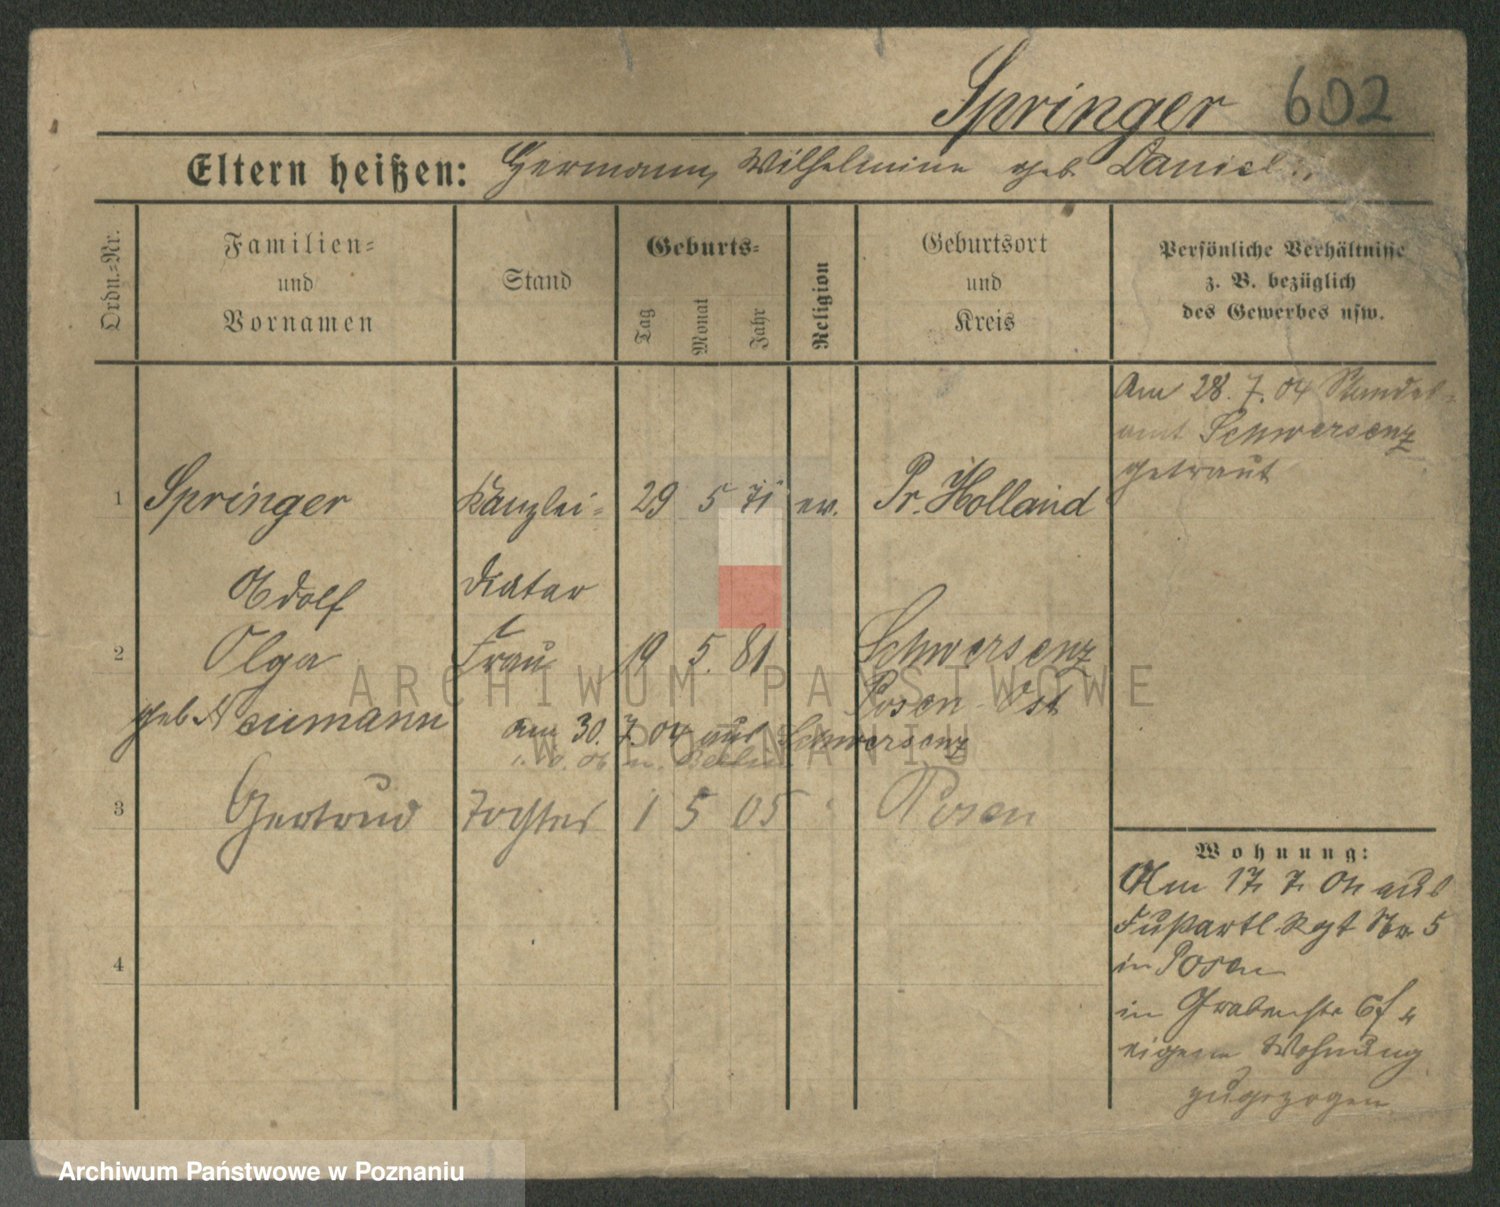 Springer 602
Eltern heißen: Hermann, Wilhelmine geb. Daniel
Ordn.-Nr.
Familien-
und
Vornamen
Stand
Geburts-
Tag
Monat
Jahr
Religion
Geburtsort
und
Kreis
Persönliche Verhältnisse
z. B. bezüglich
des Gewerbes usw.
Am 28. 7. 04 Standes-
amt Schwersenz
getraut
1 Springer Kanzlei- 29 5 71 ev. Pr. Holland
Adolf Diätar
2 Olga Frau 19 5. 81 Schwersenz
Posen Ost
geb. Neumann am 30. 7. 04 aus Schwersenz
3 Gertrud Tochter 1 5 05 Posen
4
Wohnung:
Am 17. 7. 04 aus
Fußartl. Rgt Nr. 5
in Posen
in Grabenstr 6
eigene Wohnung
zugezogen
ARCHIWUM PAŃSTWOWE
W POZNANIU
Archiwum Państwowe w Poznaniu